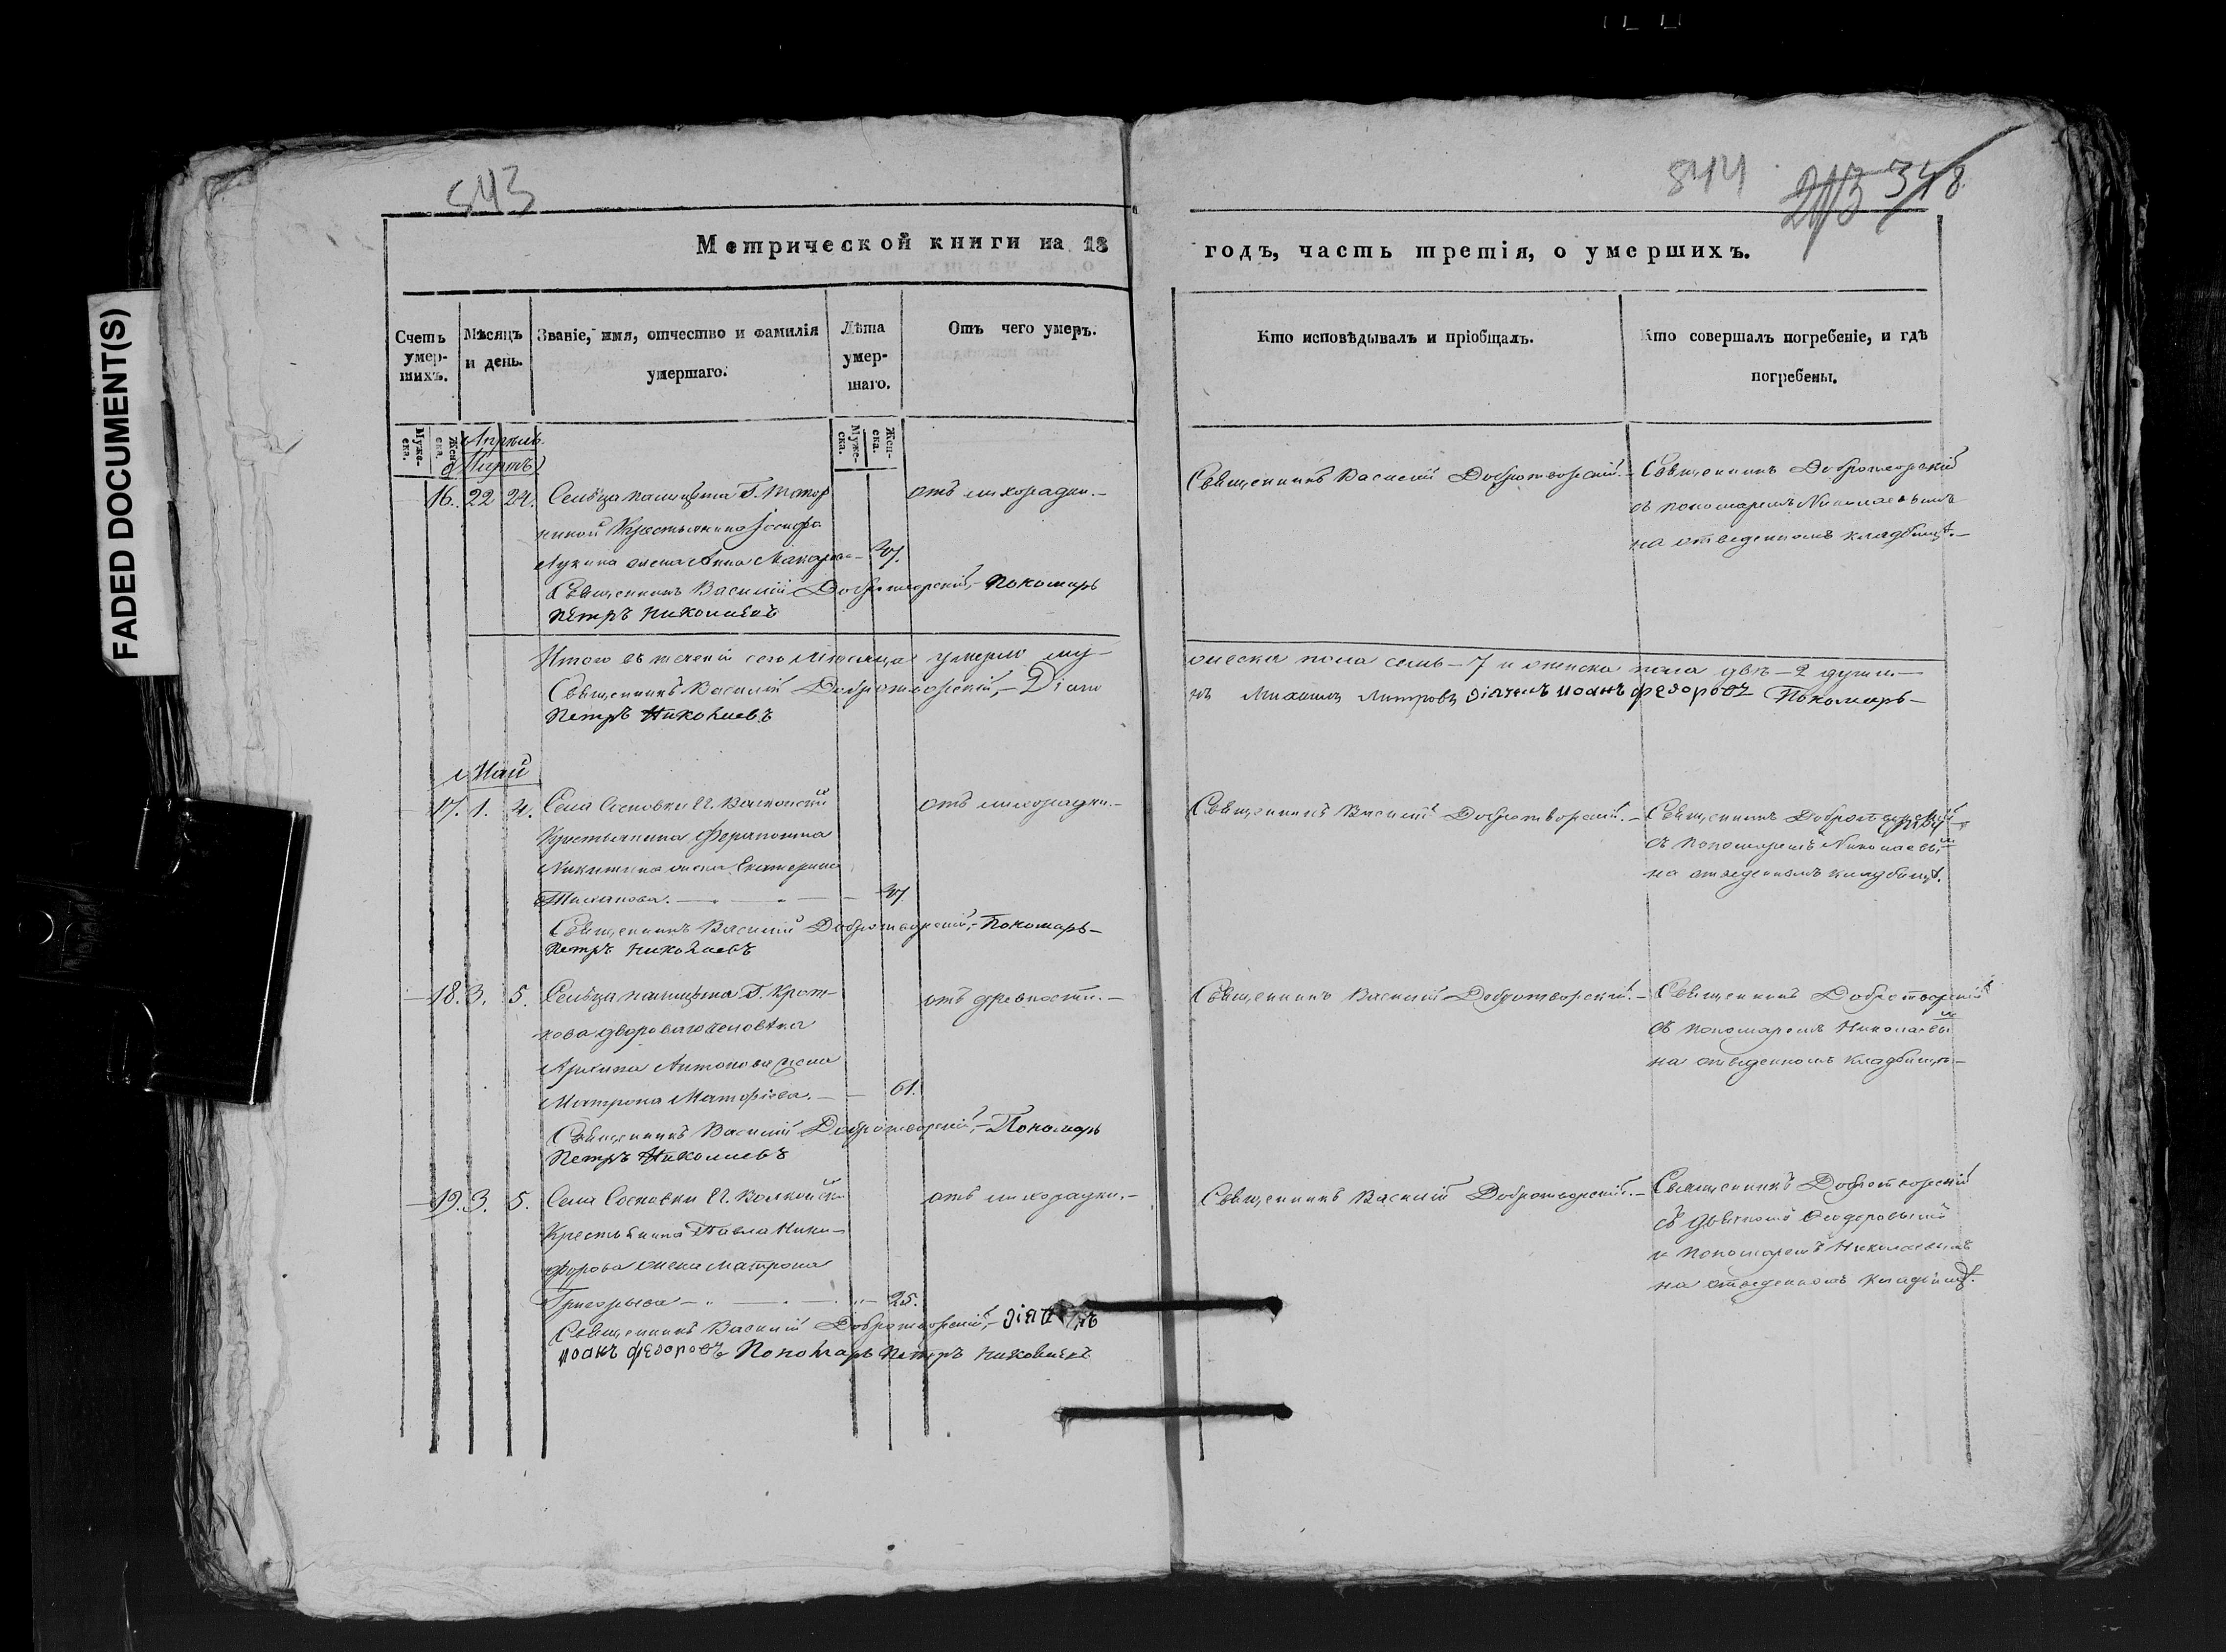 FADED DOCUMENT(S)
843
844 213 348
Метрической книги на 18
годъ, часть третія, о умершихъ.
Счетъ умер-шихъ.
Мѣсяцъ и день.
Званіе, имя, отчество и фамилія умершаго.
Лѣта умер-шаго.
Отъ чего умеръ.
Кто исповѣдывалъ и пріобщалъ.
Кто совершалъ погребеніе, и гдѣ погребены.
Муже-ска. Жен-ска.
Муже-ска. Жен-ска.
Апрѣль
16. 22 24. Сельца
Крестьянина Іосифа
Лукина жена Анна Макарова
отъ лихорадки.-
Священникъ Василій Добротворскій.-
Священникъ Добротворскій
съ пономаремъ Николаевымъ
на отведенномъ кладбищѣ.-
Священникъ Василій Добротворскій,- Пономарь
Петръ Николаевъ
Итого въ теченіи сего мѣсяца умерло му-
жеска пола семь-7 и женска пола двѣ-2 души.-
Священникъ Василій Добротворскій,- Діако
нъ Михаилъ Митровъ діячекъ иоанъ федоровъ Пономарь-
Петръ Николаевъ
Май
-17. 1. 4. Села Сосновки
Крестьянина Ферапонта
Никитина жена Екатерина
отъ лихорадки.-
Священникъ Василій Добротворскій.-
Священникъ Добротворскій
съ пономаремъ Николаевымъ
на отведенномъ кладбищѣ.
Священникъ Василій Добротворскій,- Пономарь-
Петръ Николаевъ
-18. 3. 5. Сельца Г. Крот-
кова двороваго человѣка
Антонова жена
Матрона - 61.
отъ древности.-
Священникъ Василій Добротворскій.-
Священникъ Добротворскій
съ пономаремъ Николаевымъ
на отведенномъ кладбищѣ-
Священникъ Василій Добротворскій,- Пономарь
Петръ Николаевъ
-19. 3. 5. Села Сосновки
Крестьянина Павла Ники-
форова жена Матрона
Григорьева - 25.
отъ лихорадки.-
Священникъ Василій Добротворскій.-
Священникъ Добротворскій
съ дьячкомъ Феодоровымъ
и пономаремъ Николаевымъ
на отведенномъ кладбищѣ.
Священникъ Василій Добротворскій,- діячекъ
иоанъ федоровъ Пономарь Петръ Николаевъ